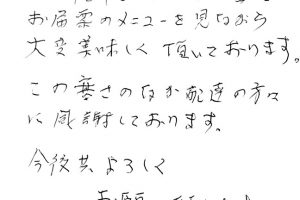 お届票のメニューを見ながら
大変美味しく頂いております。
この寒さのなか配達の方々
に感謝しております。
今後共よろしく